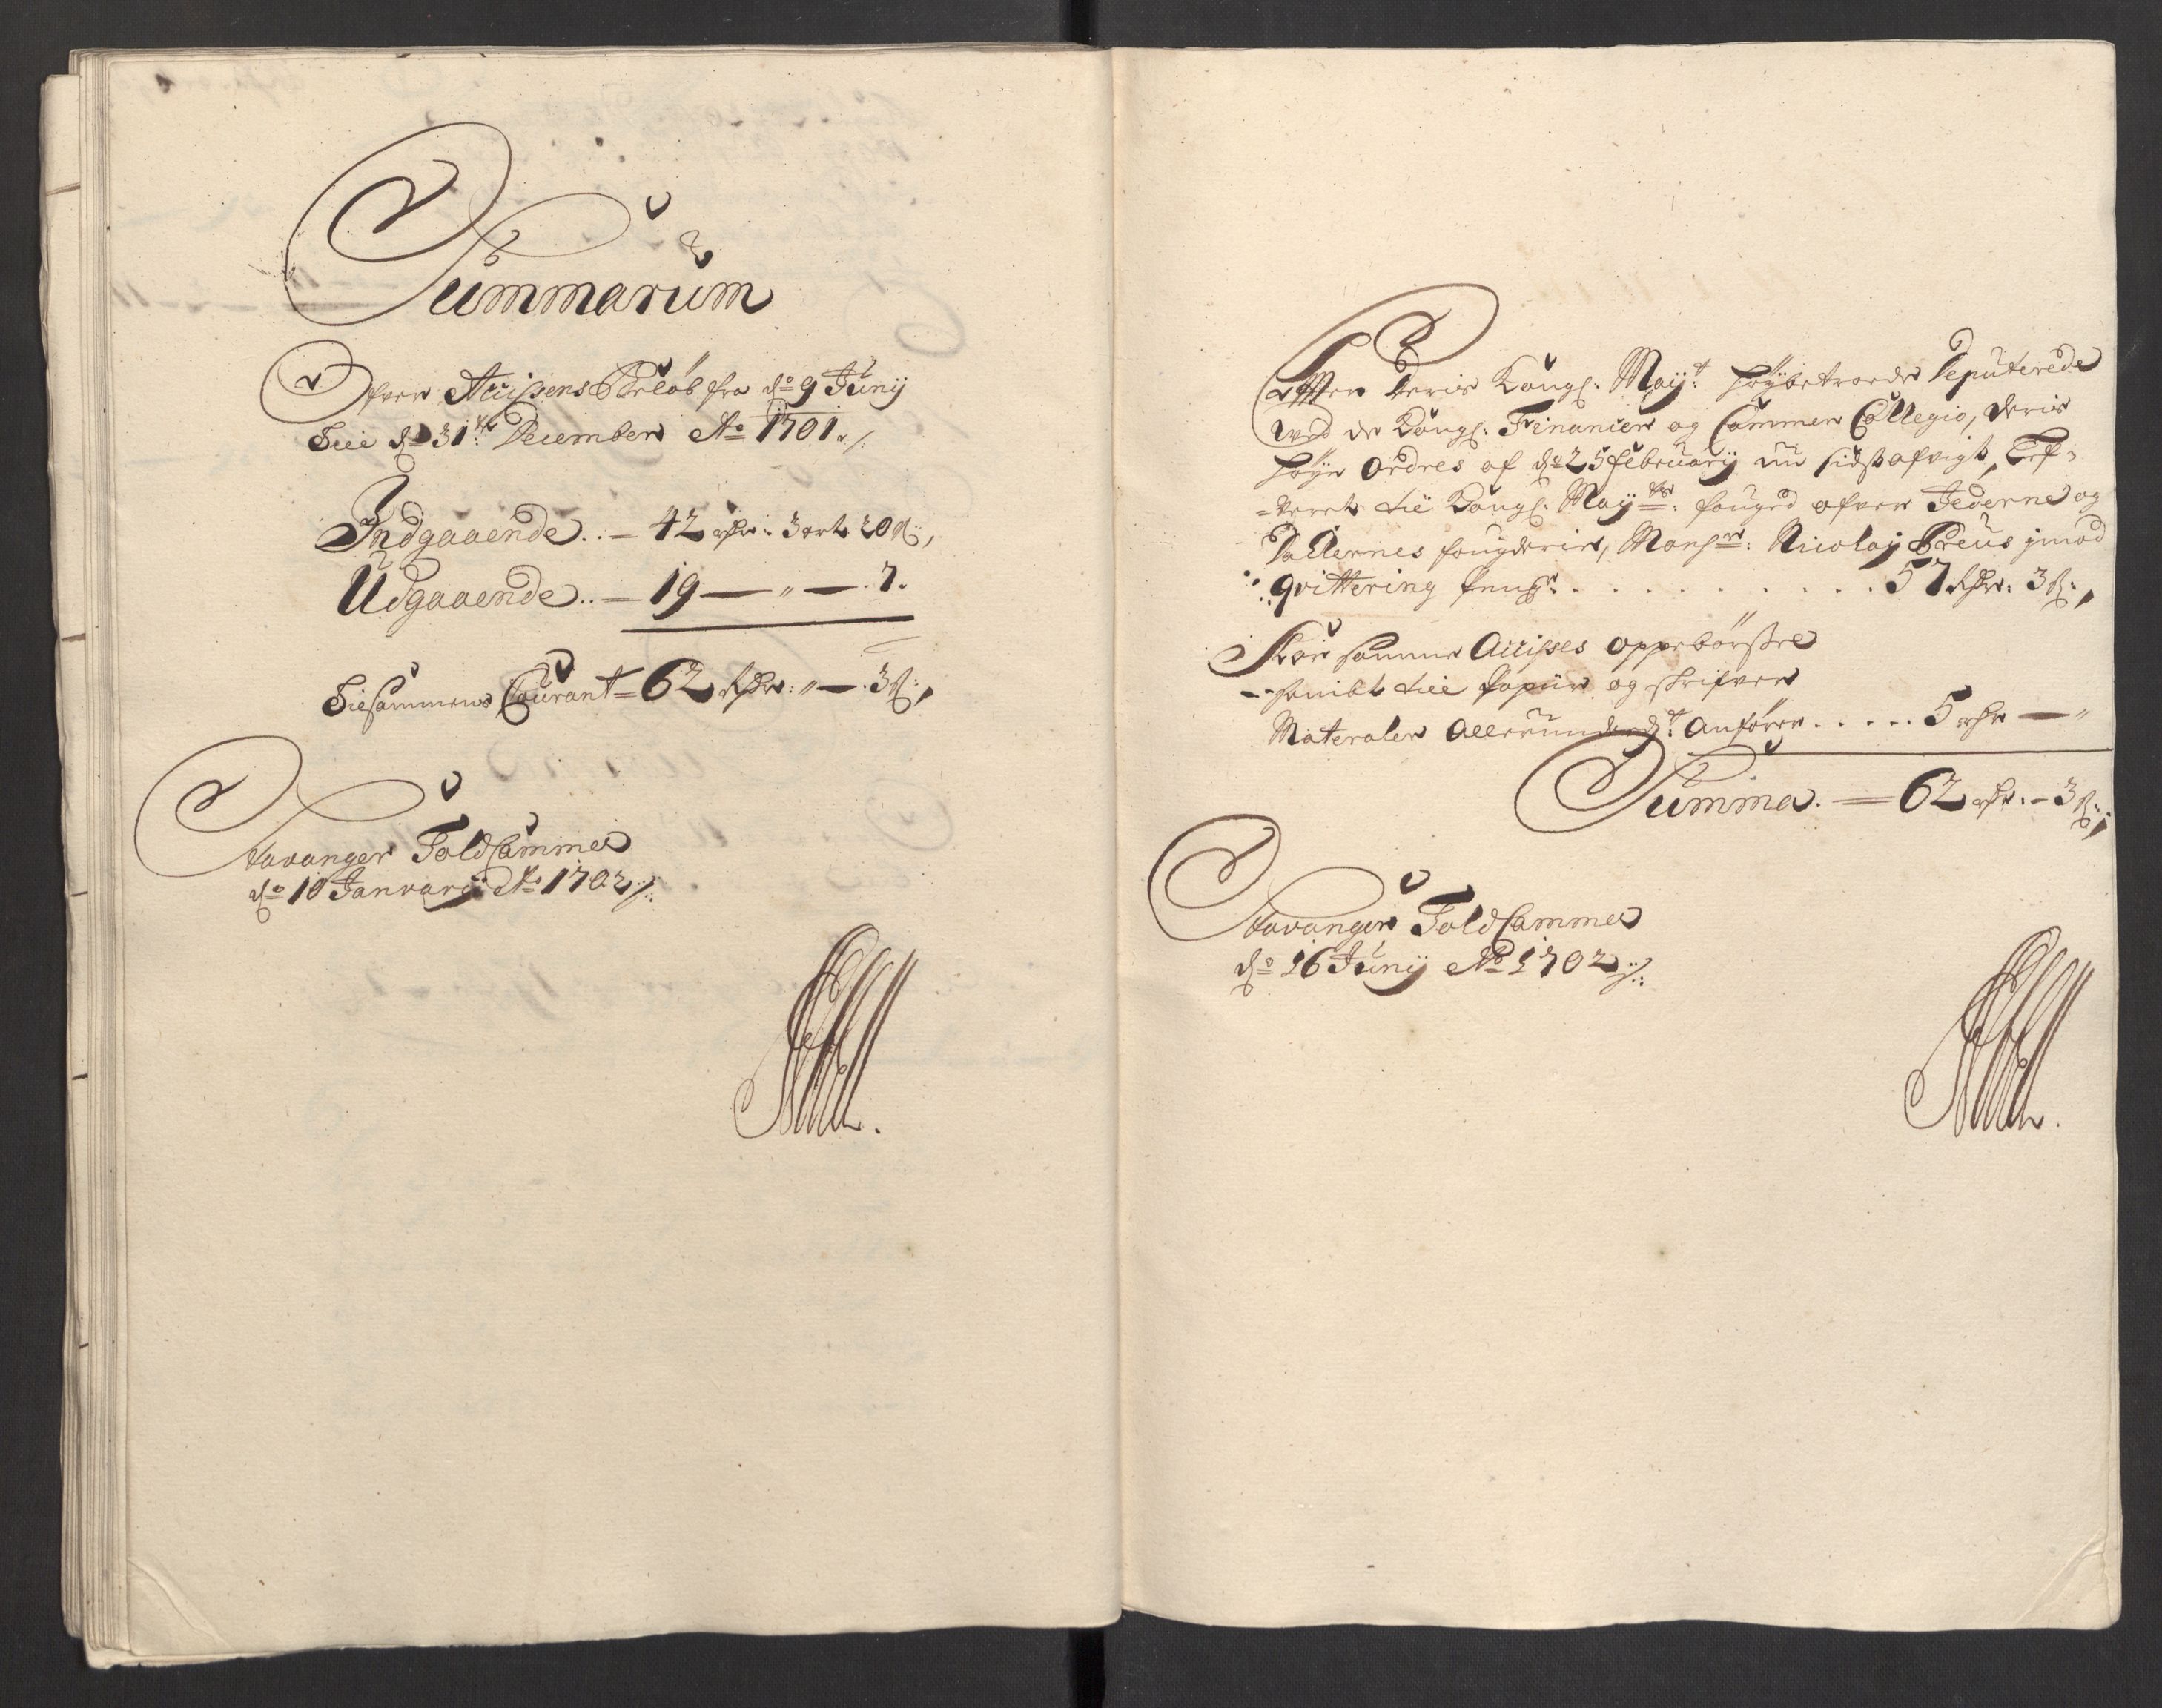 Summarum
Ofver Accisens Beløb fra d: 9 Junij
Till d: 31te December Ao 1701 ./.
Indgaaende .. — 42 rdr: 3 ort 20 s,
Udgaaende .. — 19 — " — . 7 .
Tilsammens Courant = 62 Rdr: " — . 3 s:,
Stavanger Told Cammer
do 10 Januarij Ao 1702 ./.
Effter Deris Kongl: Mayt: høybetroede Deputerede
ved de Kongl: Financier og Cammer Collegio, deris
høye Ordres af do 25 Februarij nu sidst afvigt, Lef-
=veret till Kongl: Mayts: fouged ofver Jederne og
Dallernes fougderie, Monsr: Nicolaj Preus jmod
qvittering . . . . . . . . . . 57 Rdr: 3 s:,
For samme Accises oppebørsel
samt till Papiir og skrifver
Materialer allerunderdt: Anfører . . . . . 5 rdr — "
Summa . — 62 rdr: – 3 s:,
Stavanger Told Cammer
do 16 Junij Ao 1702 ./.